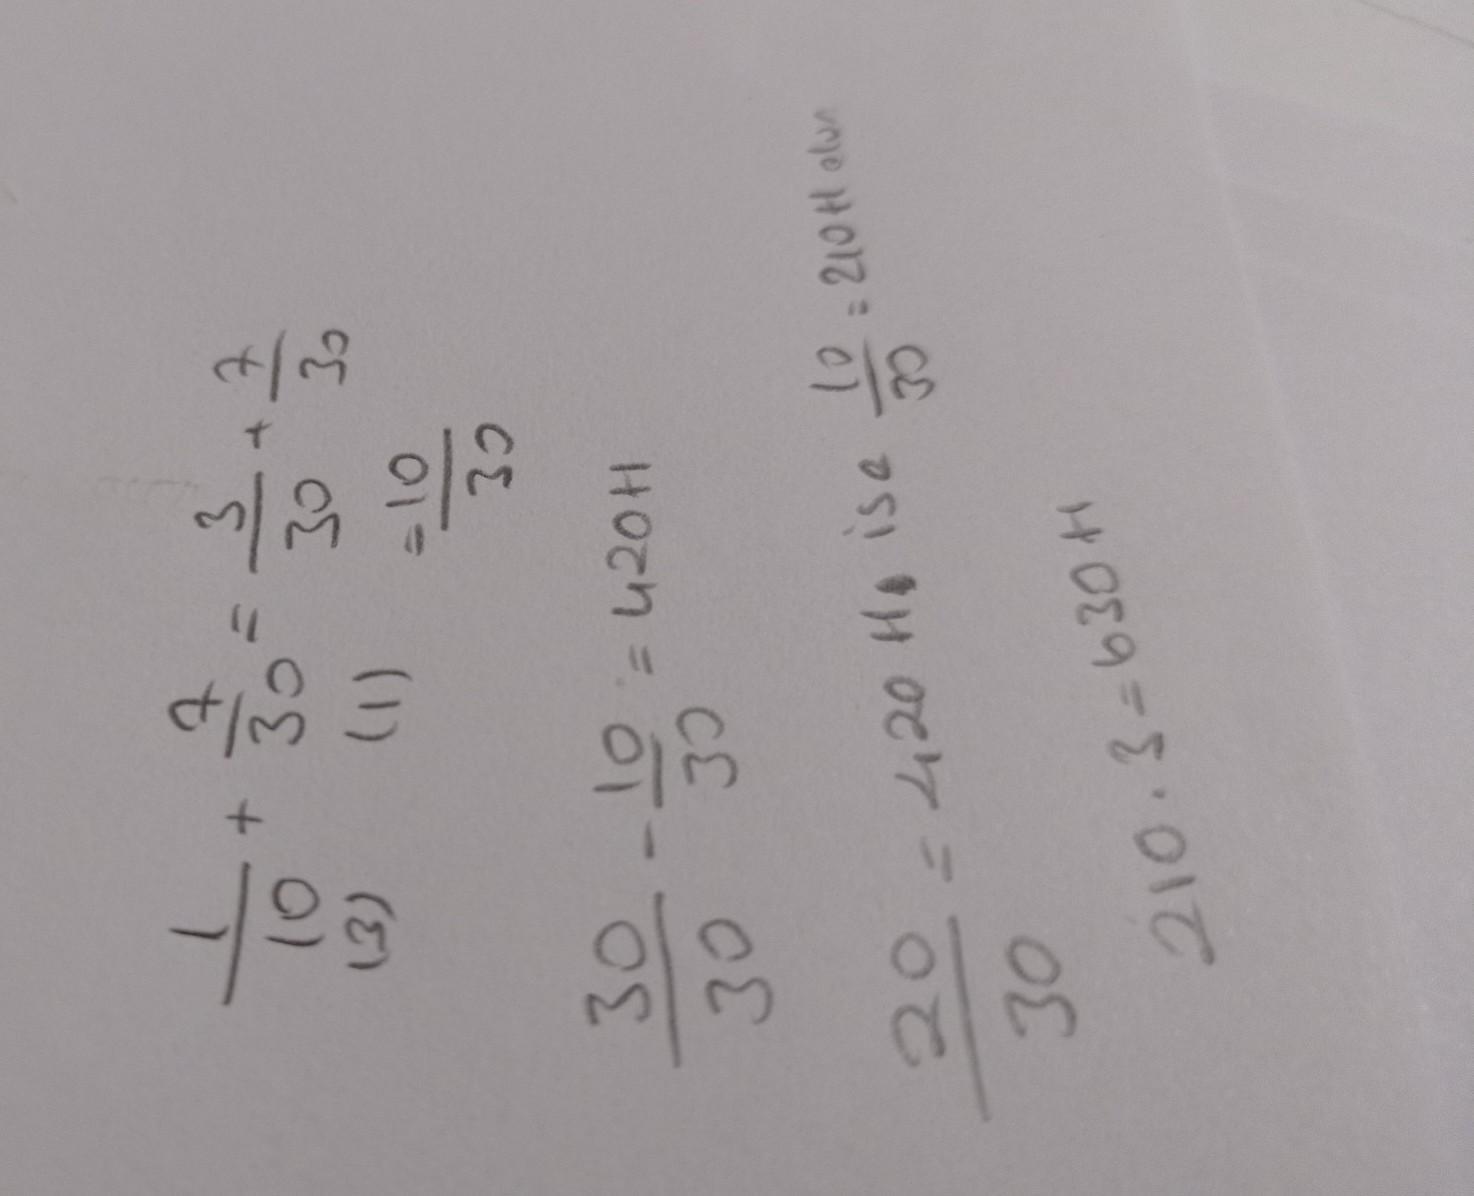 1/10 + 7/30 = 3/30 + 7/30
(3) (1) = 10/30
30/30 - 10/30 = 420H
20/30 = 420 H ise 10/30 = 210H olur
210 . 3 = 630 H